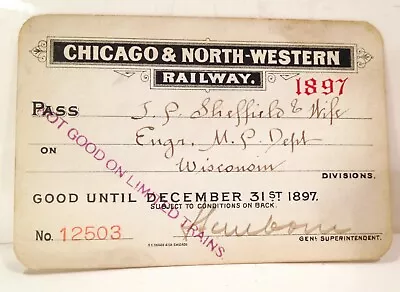 CHICAGO & NORTH-WESTERN
RAILWAY.
1897
PASS J. P. Sheffield & Wife
Engr. M. P. Dept
ON
Wisconsin
DIVISIONS.
NOT GOOD ON LIMITED TRAINS.
GOOD UNTIL DECEMBER 31ST 1897.
SUBJECT TO CONDITIONS ON BACK.
No. 12503
GENL SUPERINTENDENT.